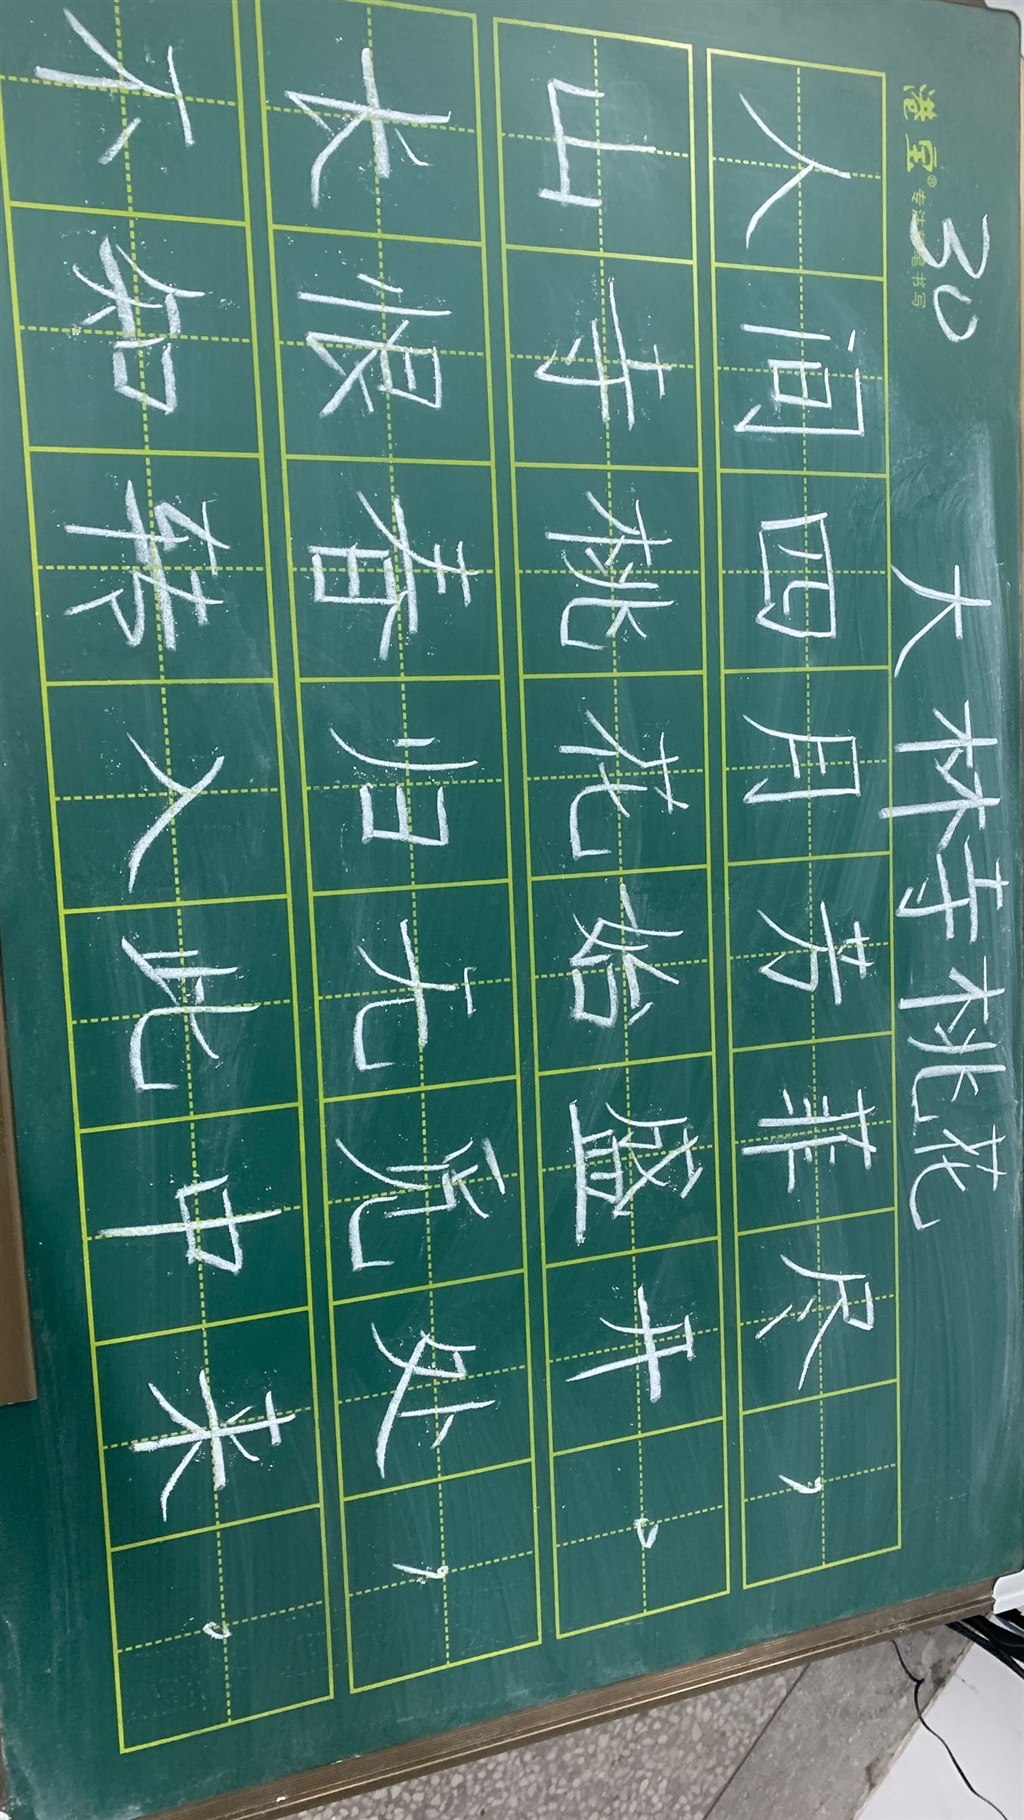 港宝®
30
大林寺桃花
人间四月芳菲尽，
山寺桃花始盛开。
长恨春归无觅处，
不知转入此中来。